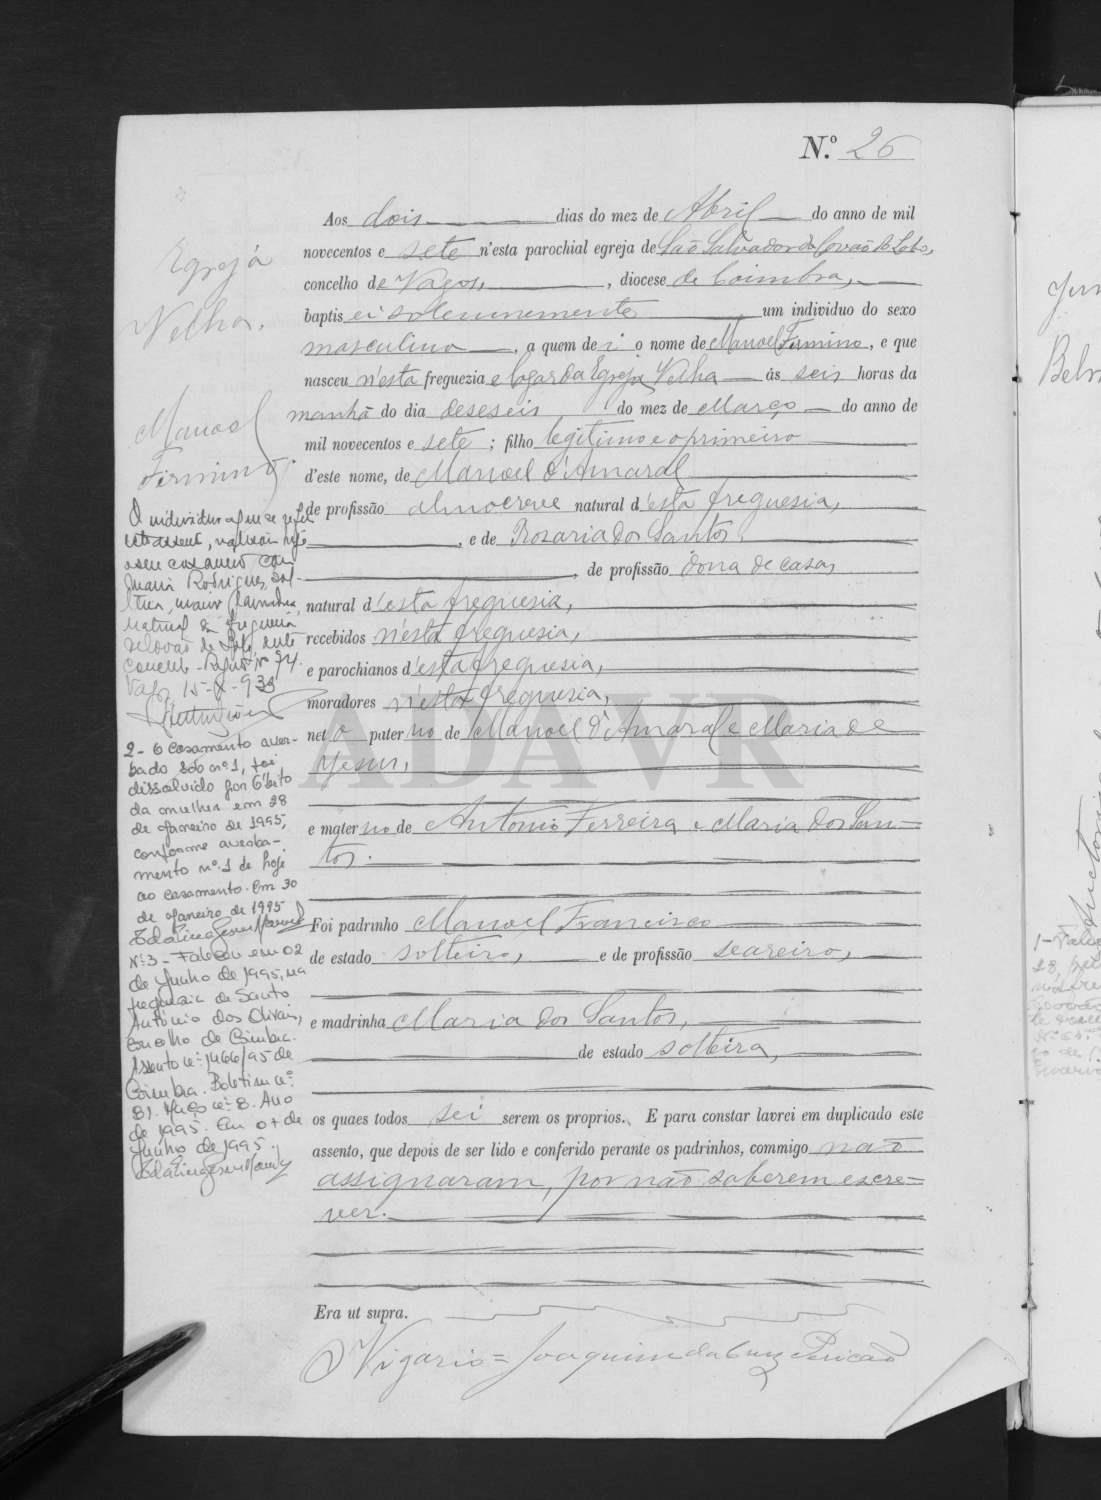 N.º 26
Aos dois dias do mez de Abril do anno de mil
novecentos e sete n'esta parochial egreja de São Salvador do Covão do Lobo,
concelho de Vagos, , diocese de Coimbra,
baptisei solemnemente um individuo do sexo
masculino , a quem dei o nome de Manoel Firmino, e que
nasceu n'esta freguezia e logar da Egreja Velha ás seis horas da
manhã do dia deseseis do mez de Março do anno de
mil novecentos e sete; filho legitimo e o primeiro
d'este nome, de Manoel d'Amaral
de profissão almocreve natural d'esta freguesia,
, e de Rosaria dos Santos
, de profissão dona de casa,
natural d'esta freguesia,
recebidos n'esta freguesia,
e parochianos d'esta freguesia,
moradores n'esta freguesia,
neto paterno de Manoel d'Amaral e Maria de
Jesus,
e materno de Antonio Ferreira e Maria dos San=
tos.
Foi padrinho Manoel Francisco
de estado solteiro, e de profissão seareiro,
e madrinha Maria dos Santos,
de estado solteira,
os quaes todos sei serem os proprios. E para constar lavrei em duplicado este
assento, que depois de ser lido e conferido perante os padrinhos, commigo não
assignaram, por não saberem escre=
ver.
Era ut supra.
O Vigario = Joaquim da Cruz
Egreja
Velha.
Manoel
Firmino.
O individuo a que se refere
este assento,
o seu casamento com
Maria Rodrigues, sol-
teira, maior,
natural da freguesia
de Covão do Lobo, deste
concelho - Registo Nº 74.
Vagos, 15-8-933
2- O casamento aver-
bado sob nº 1, foi
dissolvido por óbito
da mulher em 28
de Janeiro de 1995,
conforme averba-
mento nº 1 de hoje
ao casamento. Em 30
de Janeiro de 1995
Nº 3 - Faleceu em 02
de Junho de 1995, na
freguesia de Santo
António dos Olivais,
concelho de Coimbra.
Assento nº 1466/95 de
Coimbra. Boletim nº
81. Maço nº 8. Ano
de 1995. Em 07 de
Junho de 1995.
ADAVR